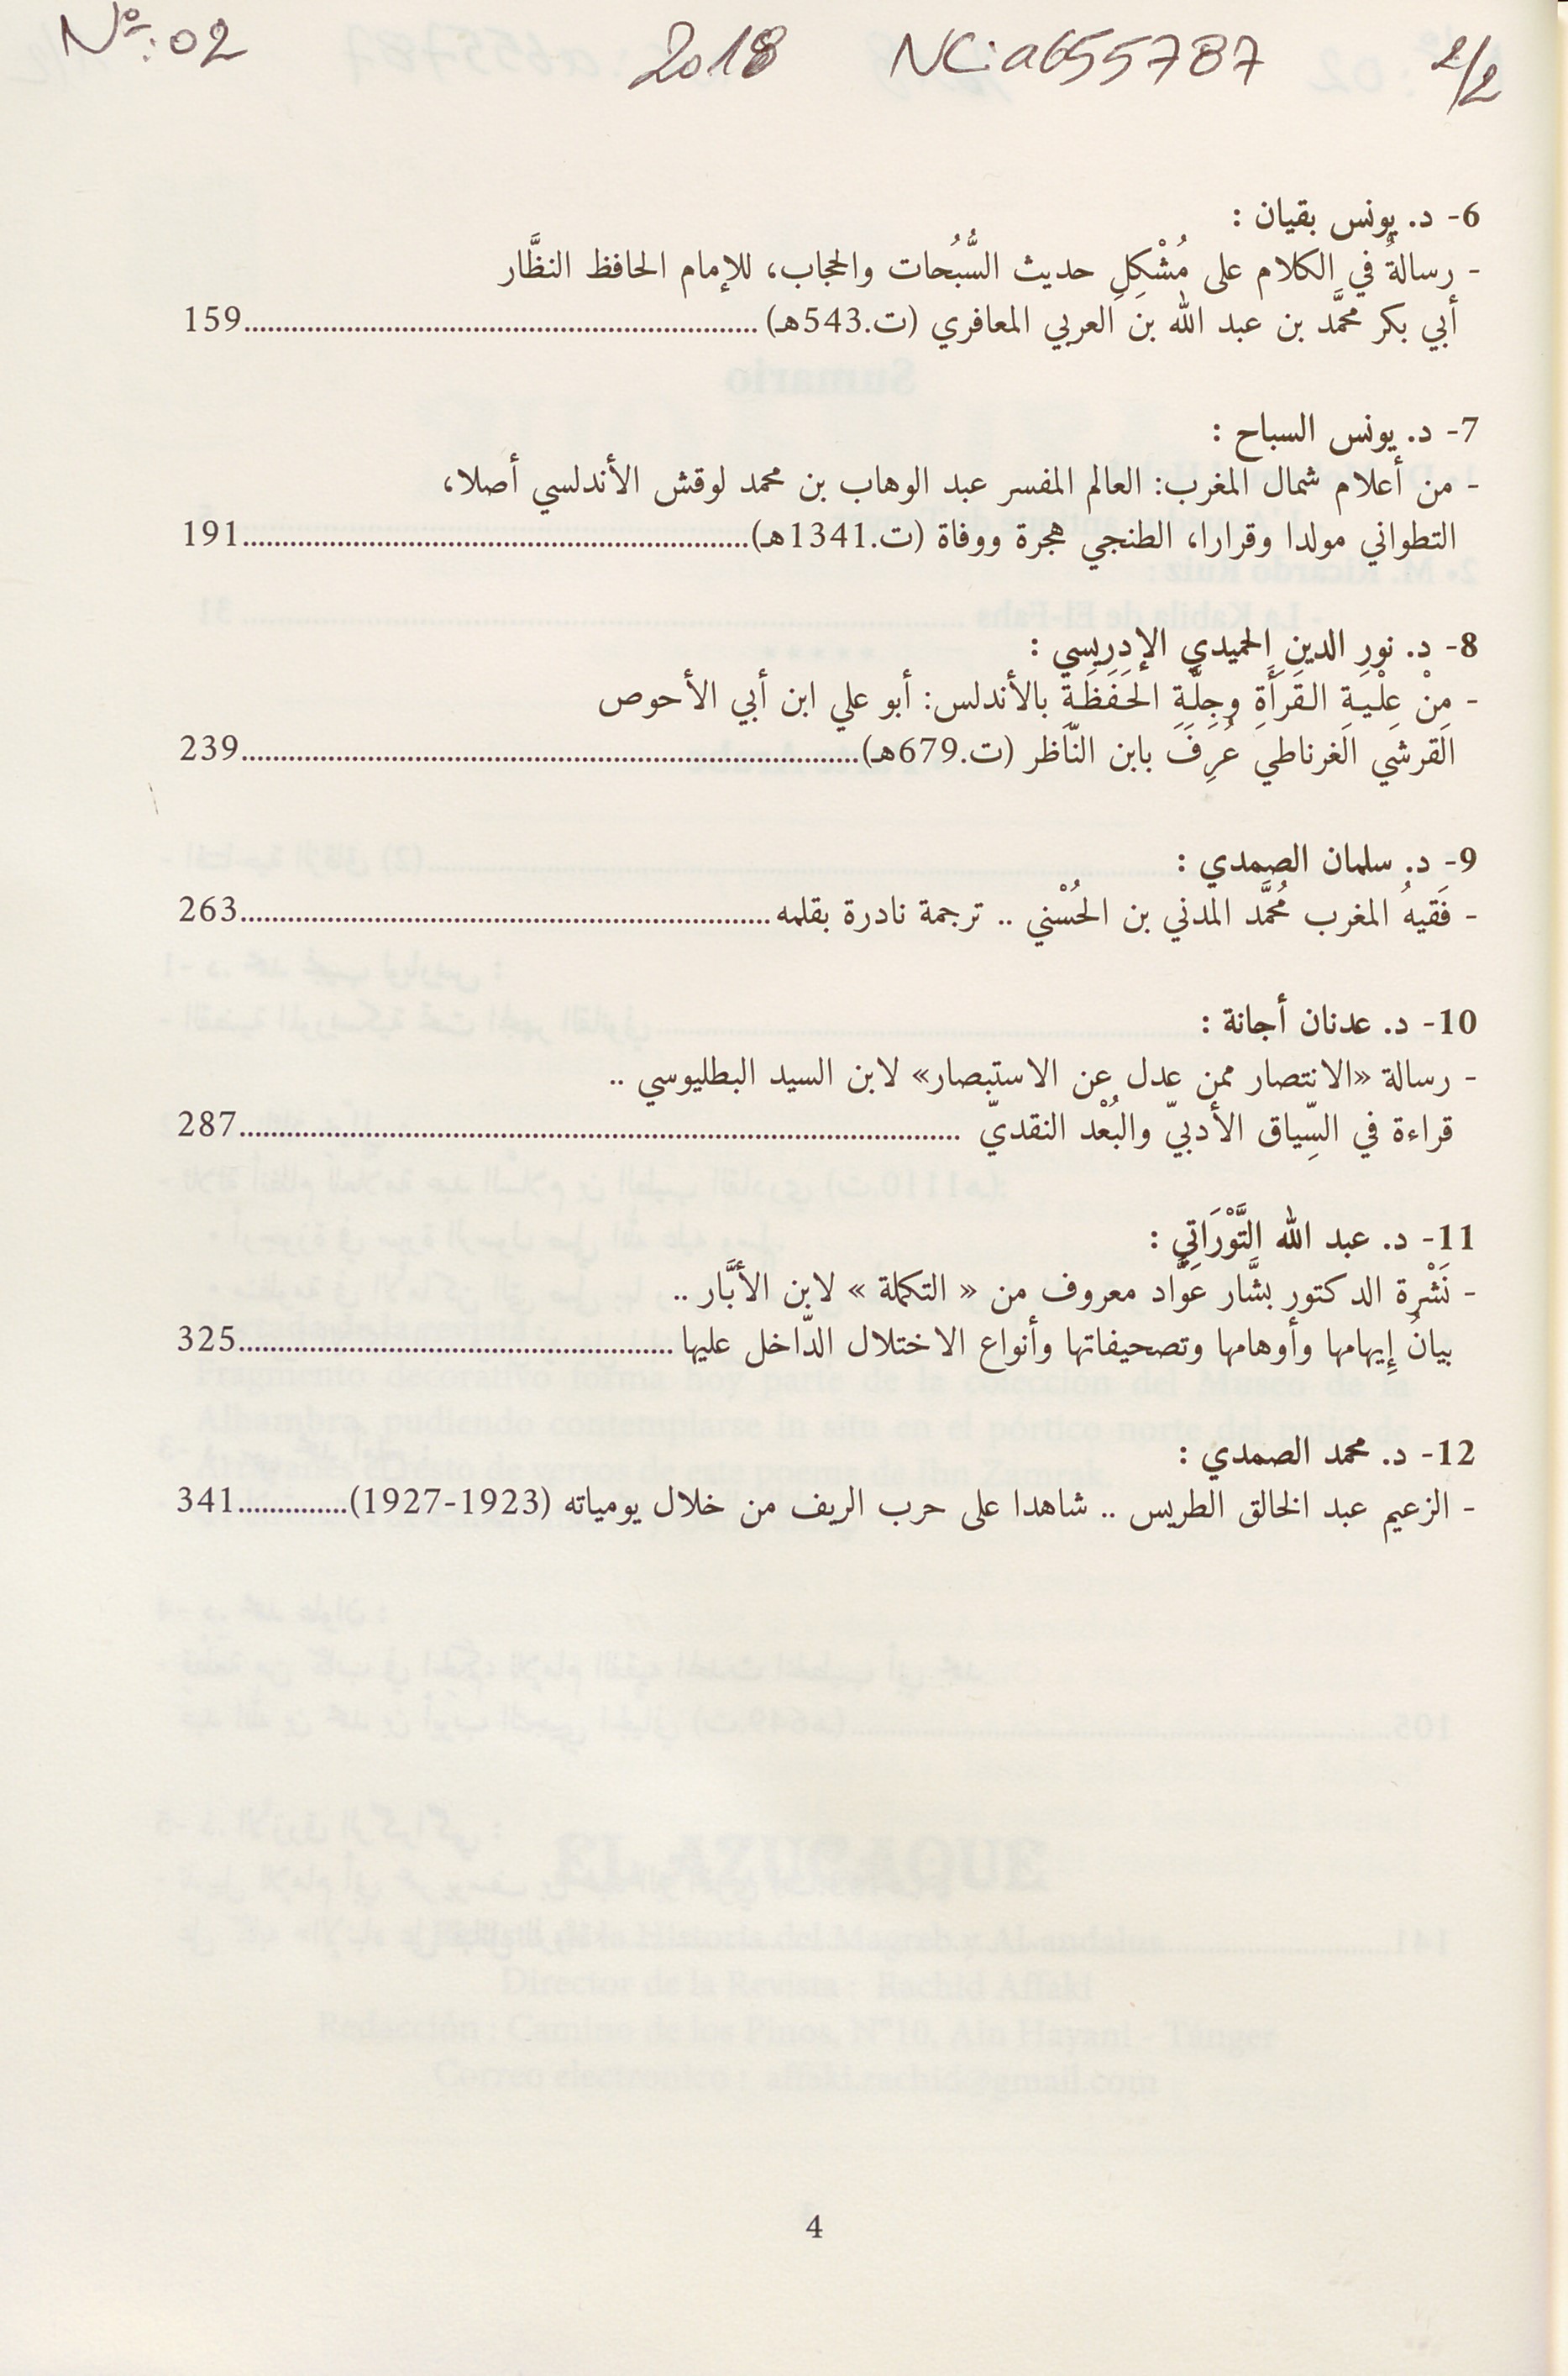 Nº: 02 2018 NC: a655787 2/2
6- د. يونس بقيان :
- رسالةٌ في الكلام على مُشْكِلِ حديث السُّبُحات والحجاب، للإمام الحافظ النظَّار
أبي بكر محمَّد بن عبد الله بن العربي المعافري (ت.543هـ) ............................................................159
7- د. يونس السباح :
- من أعلام شمال المغرب: العالم المفسر عبد الوهاب بن محمد لوقش الأندلسي أصلا،
التطواني مولدا وقرارا، الطنجي هجرة ووفاة (ت.1341هـ)............................................................191
8- د. نور الدين الحميدي الإدريسي :
- مِنْ عِلْيَةِ القَرَأَةِ وجِلَّةِ الحَفَظَةِ بالأندلس: أبو علي ابن أبي الأحوص
القرشي الغرناطي عُرِفَ بابن النّاظر (ت.679هـ)............................................................239
9- د. سلمان الصمدي :
- فَقيهُ المغرب مُحمَّد المدني بن الحُسْني .. ترجمة نادرة بقلمه............................................................263
10- د. عدنان أجانة :
- رسالة «الانتصار ممن عدل عن الاستبصار» لابن السيد البطليوسي ..
قراءة في السِّياق الأدبيّ والبُعْد النقديّ ............................................................287
11- د. عبد الله التَّوْرَاتِي :
- نَشْرة الدكتور بشَّار عَوَّاد معروف من « التكملة » لابن الأبَّار ..
بيانُ إيهامها وأوهامها وتصحيفاتها وأنواع الاختلال الدّاخل عليها............................................................325
12- د. محمد الصمدي :
- الزعيم عبد الخالق الطريس .. شاهدا على حرب الريف من خلال يومياته (1923-1927)..............341
4